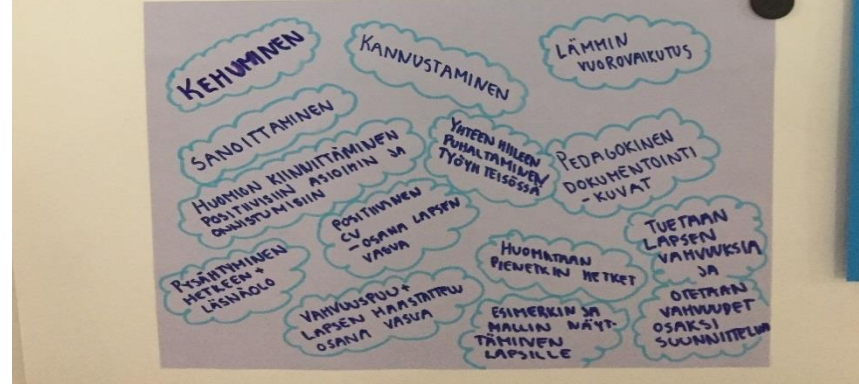 KEHUMINEN
KANNUSTAMINEN
LÄMMIN
VUOROVAIKUTUS
SANOITTAMINEN
HUOMION KIINNITTÄMINEN
POSITIIVISIIN ASIOIHIN JA
ONNISTUMISIIN
YHTEEN HIILEEN
PUHALTAMINEN
TYÖYHTEISÖSSÄ
PEDAGOKINEN
DOKUMENTOINTI
- KUVAT
POSITIIVINEN
CV
- OSANA LAPSEN
VASUA
PYSÄHTYMINEN
HETKEEN +
LÄSNÄOLO
HUOMATAAN
PIENETKIN HETKET
TUETAAN
LAPSEN
VAHVUUKSIA
JA
OTETAAN
VAHVUUDET
OSAKSI
SUUNNITTELUA
VAHVUUSPUU +
LAPSEN HAASTATTELU
OSANA VASUA
ESIMERKIN JA
MALLIN NÄYT-
TÄMINEN
LAPSILLE